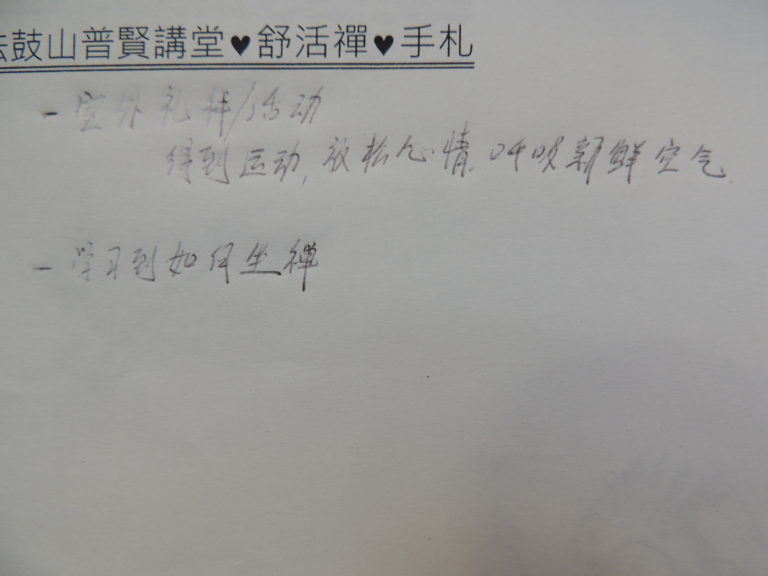 法鼓山普賢講堂♥舒活禪♥手札
- 室外礼拜/活动
得到运动, 放松心情, 呼吸新鲜空气.
- 学习到如何坐禅